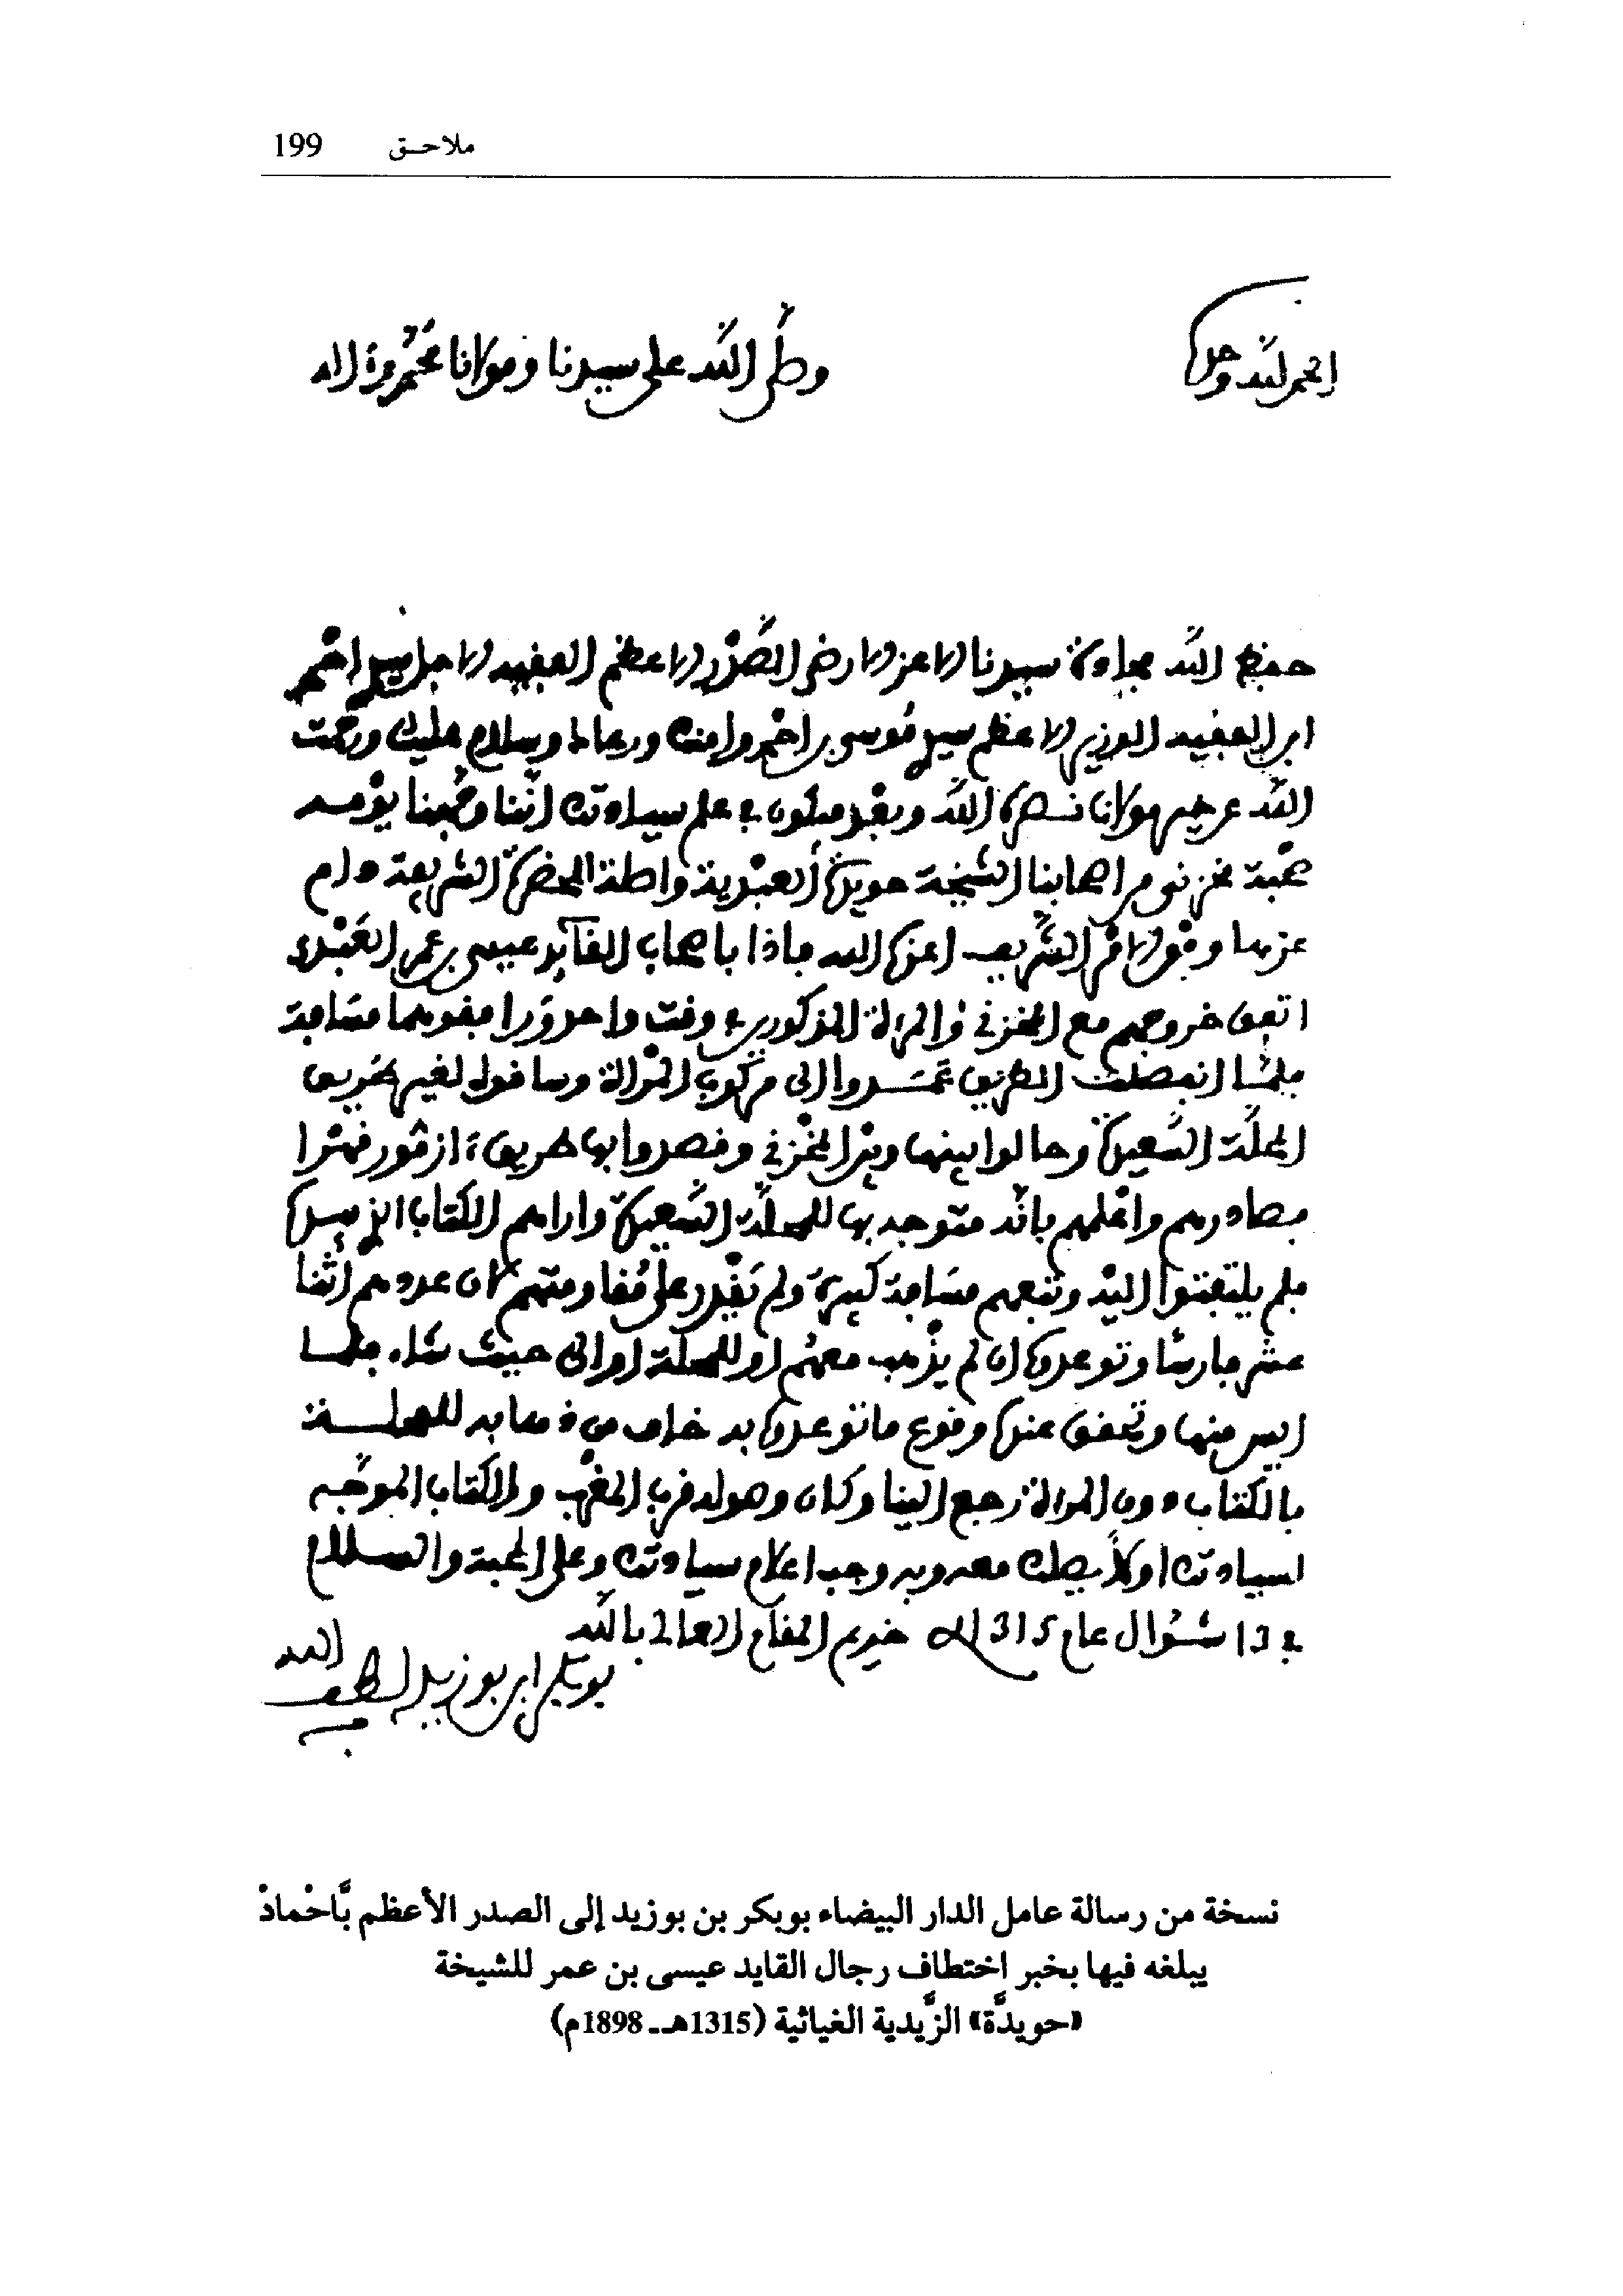 ملاحـق 199
الحمد لله وحده
وصلى الله على سيدنا ومولانا محمد وءاله
حفظ الله بجاه سيدنا الاعز الارضى الصدر الاعظم الفقيه الاجل سيدي احمد
ابن الفقيه الوزير الاعظم سيدي موسى بن احمد وامنك ورعاك وسلام عليك ورحمت
الله عن خير مولانا نصره الله وبعد فيكون في علم سيادتك اننا وجهنا يومه
صحبة مخزني من اصحابنا الشيخة حويدة العبدية واصلة الحضرة الشريفة دام
عزها وفق الامر الشريف اعزه الله فاذا باصحاب القائد عيسى بن عمر العبدي
اتفق خروجهم مع المخزني والمراة المذكورين في وقت واحد ورافقوهما مسافة
فلما انفصلت الطريق عمدوا الى مركوب المراة وساقوه لغير طريق
المحلة السعيدة وحالوا بينها وبين المخزني وقصدوا بها طريق ءازمور قهرا
فصادرهم واعلمهم بانه متوجه بها للمحلة السعيدة واراهم الكتاب الذي بيده
فلم يلتفتوا اليه وتبعهم مسافة كبيرة ولم يقدر على مقاومتهم لان عددهم اثنا
عشر فارسا وتوعدوه ان لم يذهب معهم او للمحلة او الى حيث شاء فلما
ايس منها وتحقق عنده وقوع ما توعدوه به خاف من ذهابه للمحلة
بالكتاب دون المراة رجع الينا وكان وصوله قرب المغرب والكتاب الموجه
لسيادتك اولا يصلك معه وبه وجب اعلام سيادتك وعلى المحبة والسلام
في 13 شوال عام 1315 خديم المقام العالي بالله
بوبكر ابن بوزيد لطف الله
به
نسخة من رسالة عامل الدار البيضاء بوبكر بن بوزيد إلى الصدر الأعظم بَّاحْمادْ
يبلغه فيها بخبر اختطاف رجال القايد عيسى بن عمر للشيخة
«حويدَّة» الزَّيدية الغياثية (1315هـ ـ 1898م)